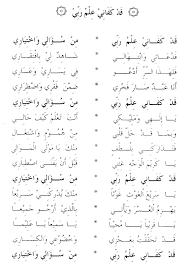 قَدْ كَفَانِيْ عِلْمُ رَبِّيْ
قَدْ كَفَانِيْ عِلْمُ رَبِّيْ * مِنْ سُؤَالِيْ وَاخْتِيَارِيْ
فَدُعَائِيْ وَابْتِهَالِيْ * شَاهِدٌ لِيْ بِافْتِقَارِيْ
فَلِهَذَا السِّرِّ أَدْعُوْ * فِيْ يَسَارِيْ وَعَسَارِيْ
أَنَا عَبْدٌ صَارَ فَخْرِيْ * ضِمْنَ فَقْرِيْ وَاضْطِرَارِيْ
قَدْ كَفَانِيْ عِلْمُ رَبِّيْ * مِنْ سُؤَالِيْ وَاخْتِيَارِيْ
يَا إِلَهِيْ وَمَلِيْكِيْ * أَنْتَ تَعْلَمُ كَيْفَ حَالِيْ
وَبِمَا قَدْ حَلَّ قَلْبِيْ * مِنْ هُمُوْمٍ وَاشْتِغَالِيْ
فَتَدَارَكْنِيْ بِلُطْفٍ * مِنْكَ يَا مَوْلَى الْمَوَالِيْ
يَا كَرِيْمَ الْوَجْهِ غِثْنِيْ * قَبْلَ أَنْ يَفْنَى اصْطِبَارِيْ
قَدْ كَفَانِيْ عِلْمُ رَبِّيْ * مِنْ سُؤَالِيْ وَاخْتِيَارِيْ
يَا سَرِيْعَ الْغَوْثِ غَوْثًا * مِنْكَ يُدْرِكْنِيْ سَرِيْعًا
يَهْزِمُ الْعُسْرَ وَيَأْتِيْ * بِالَّذِيْ أَرْجُوْ جَمِيْعًا
يَا قَرِيْبًا يَا مُجِيْبًا * يَا عَلِيْمًا يَا سَمِيْعًا
قَدْ تَحَقَّقْتُ بِعَجْزِيْ * وَخُضُوْعِيْ وَانْكِسَارِيْ
قَدْ كَفَانِيْ عِلْمُ رَبِّيْ * مِنْ سُؤَالِيْ وَاخْتِيَارِيْ